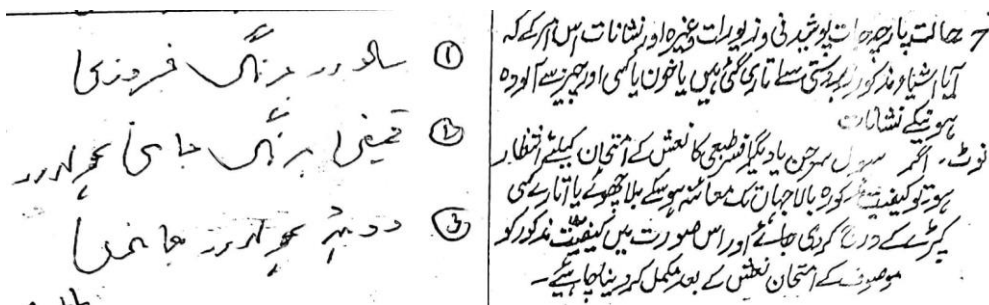 7 حالت پارچہ جات پوشیدنی و زیورات وغیرہ اور نشانات اس امر کے کہ
آیا اشیاء مذکور زبردستی سے اتاری گئی ہیں یا خون یا کسی اور چیز سے آلودہ
ہونیکے نشانات
نوٹ۔ اگر سول سرجن یا دیگر افسر طبعی کا نعش کے امتحان کیلئے انتظار
ہو تو کیفیت مذکورہ بالا جہاں تک معائنہ ہو سکے بلا چھوئے یا اتارے کسی
کپڑے کے درج کردی جائے اور اس صورت میں کیفیت مذکور کو
موصوف کے امتحان نعش کے بعد مکمل کر دینا چاہیئے۔
① برنگ فروزی
② قمیض برنگ جامنی
③ دوپٹہ جامنی